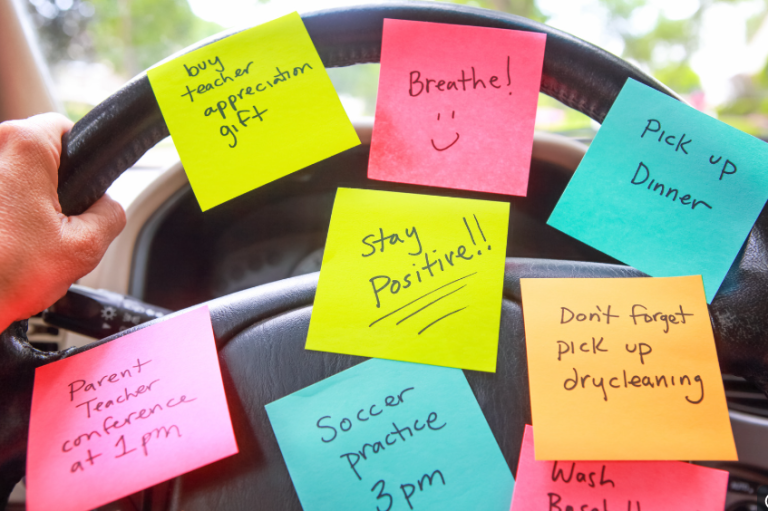 buy
teacher
appreciation
gift
Breathe!
Pick up
Dinner
Stay
Positive!!
Don't forget
pick up
drycleaning
Parent
Teacher
conference
at 1pm
Soccer
practice
3pm
Wash